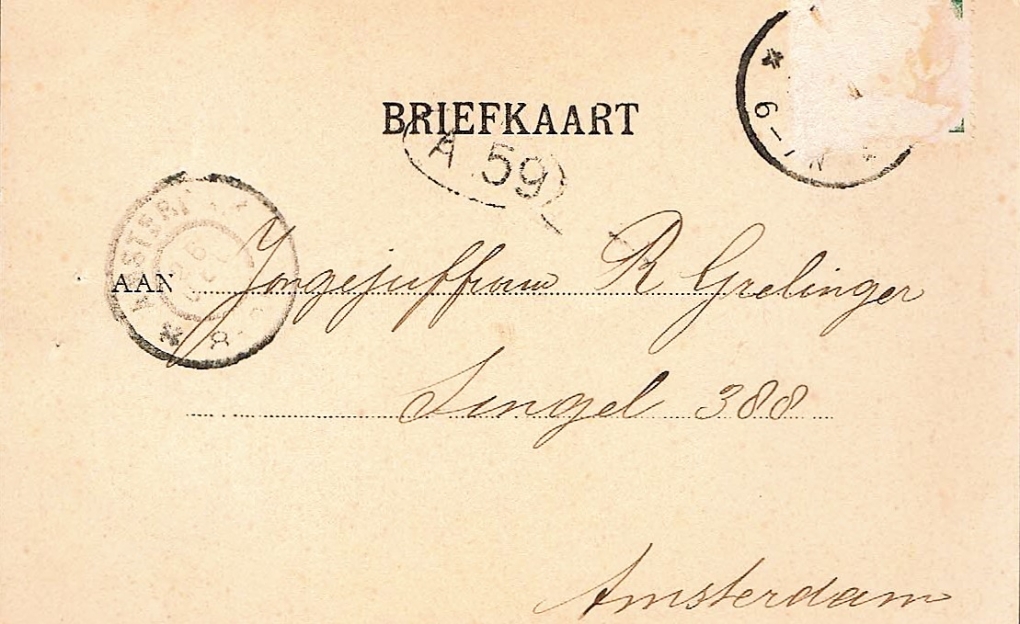 BRIEFKAART
A 59
6-7 N
AAN Jongejuffrouw R Grelinger
8-
Singel 388
Amsterdam